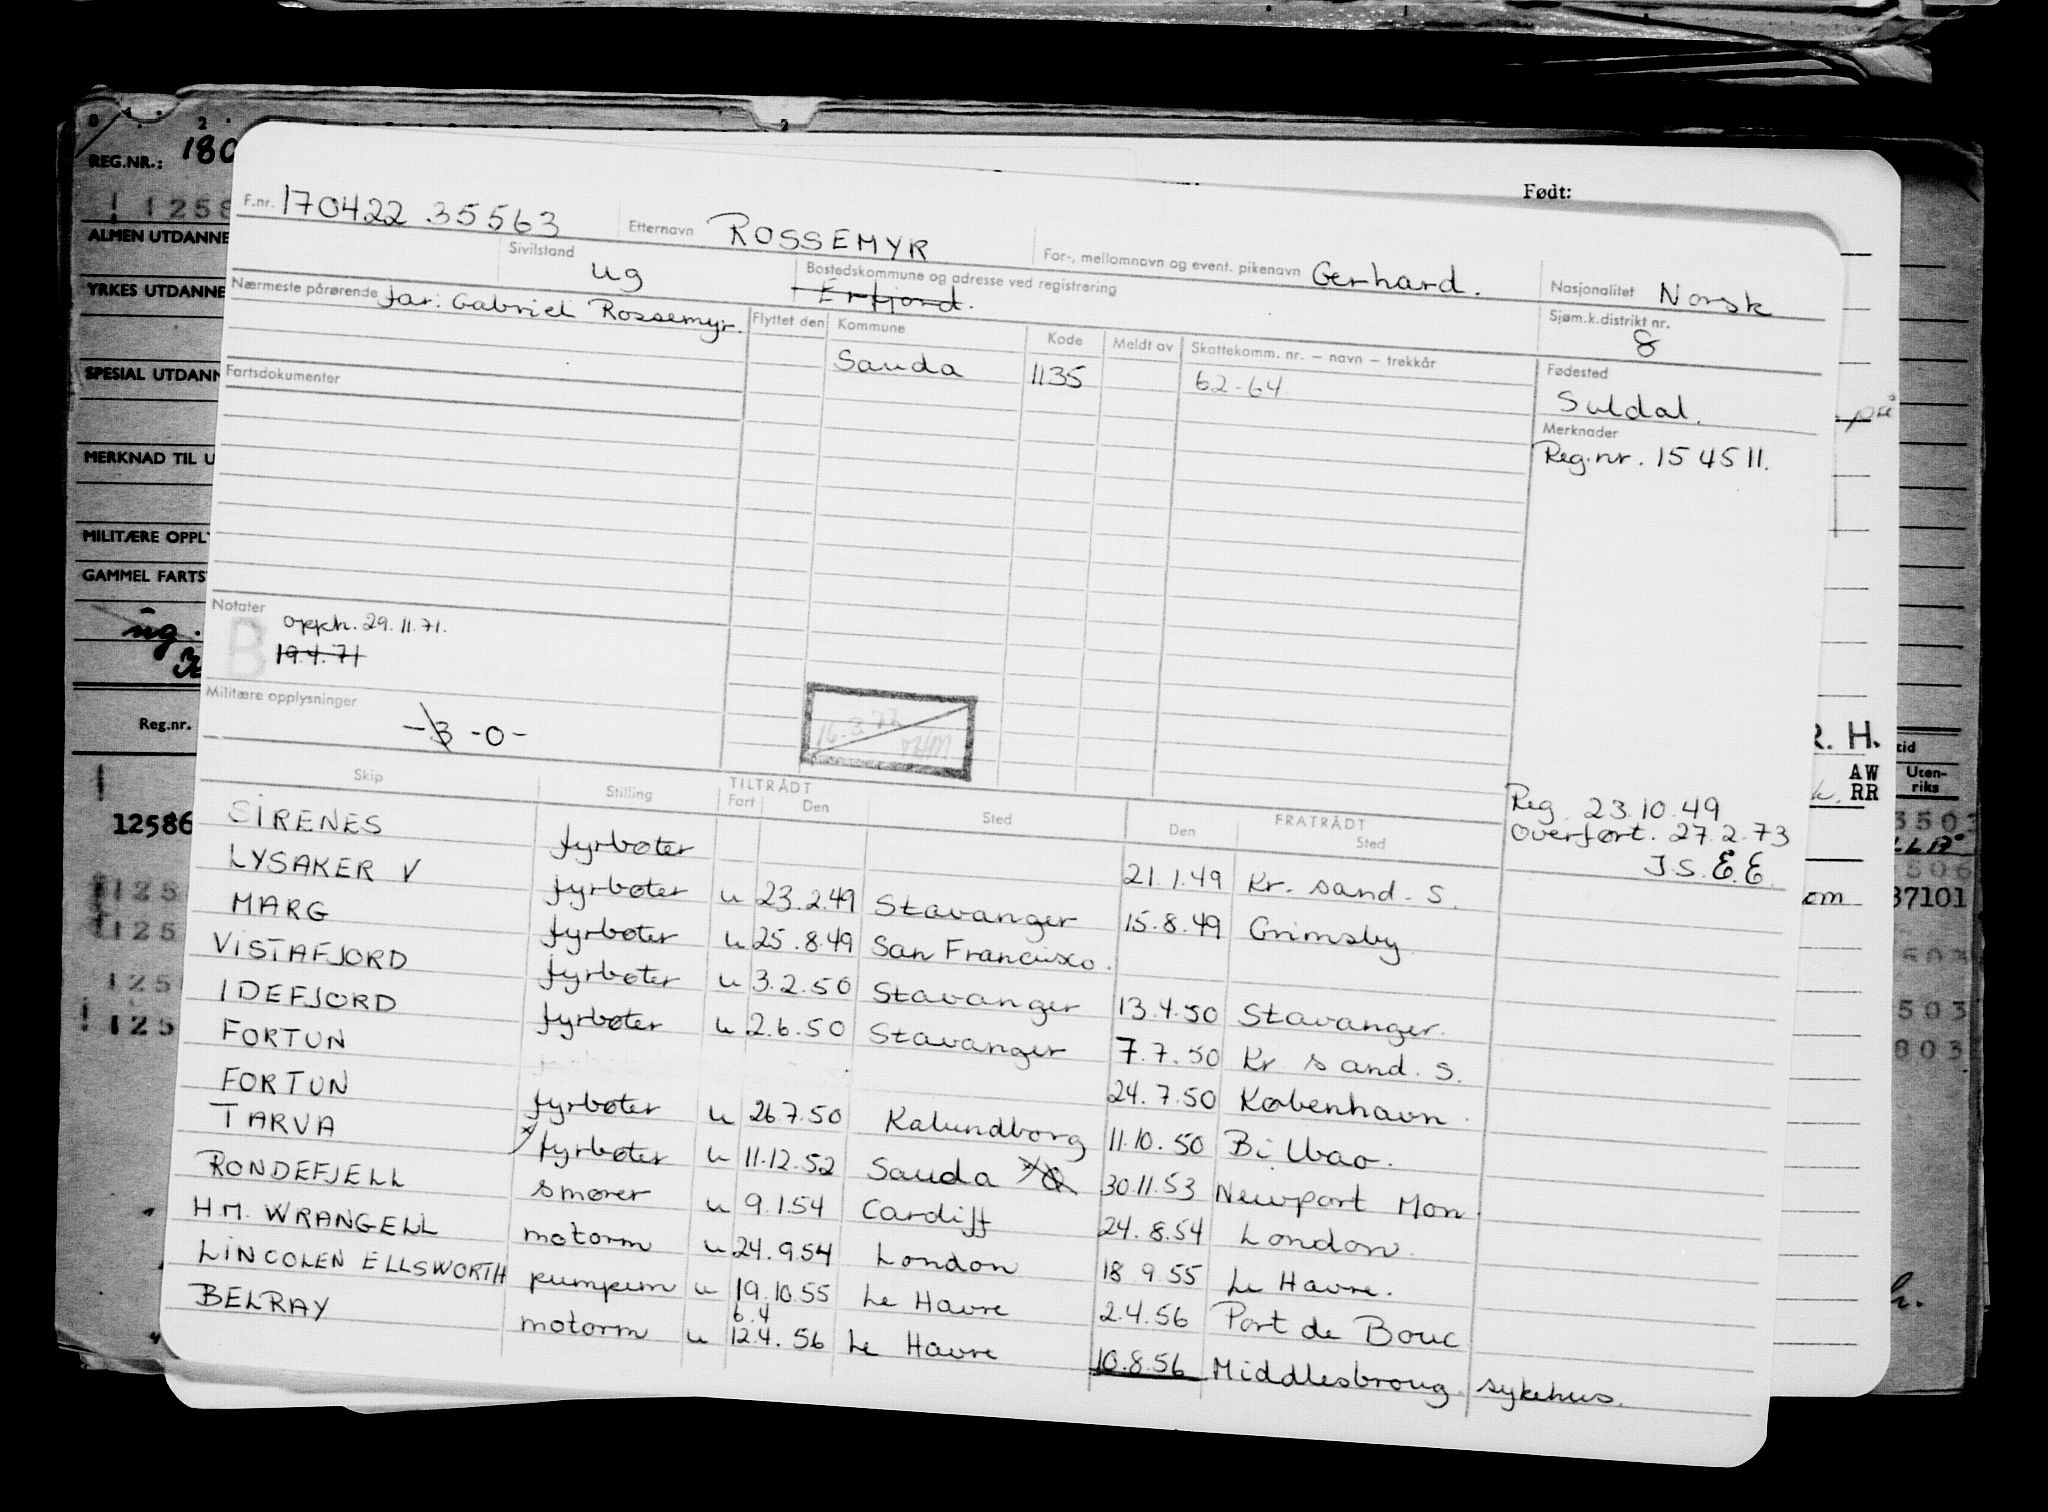 REG.NR.: 180
Født:
F.nr. 170422 35563 Etternavn ROSSEMYR For-, mellomnavn og event. pikenavn Gerhard. Nasjonalitet Norsk
ALMEN UTDANNE
Sivilstand ug Bostedskommune og adresse ved registrering Erfjord. Sjøm.k.distrikt nr. 8
YRKES UTDANNE
Nærmeste pårørende far: Gabriel Rossemyr. Flyttet den Kommune Kode Meldt av Skattekomm. nr. – navn – trekkår Fødested
Sauda 1135 62-64 Suldal.
SPESIAL UTDANN
Fartsdokumenter Merknader
Reg.nr. 154511.
MERKNAD TIL U
MILITÆRE OPPLY
GAMMEL FARTS
Notater
B opph. 29.11.71.
19.4.71
ug.
Militære opplysninger
-3 -0-
16.3.73
Reg.nr.
R. H.
AW
RR
Uten-
riks
Skip Stilling TILTRÅDT Fart Den Sted FRATRÅDT Den Sted
Reg. 23.10.49
Overført. 27.2.73
J.S. E.E.
12586
37101
SIRENES fyrbøter 21.1.49 Kr. sand. S.
LYSAKER V fyrbøter u 23.2.49 Stavanger 15.8.49 Grimsby
MARG fyrbøter u 25.8.49 San Francisco.
VISTAFJORD fyrbøter u 3.2.50 Stavanger 13.4.50 Stavanger.
IDEFJORD fyrbøter u 2.6.50 Stavanger 7.7.50 Kr sand. S.
FORTUN 24.7.50 København.
FORTUN fyrbøter u 26.7.50 Kalundborg 11.10.50 Bilbao.
TARVA fyrbøter u 11.12.52 Sauda 30.11.53 Newport Mon.
RONDEFJELL smører u 9.1.54 Cardiff 24.8.54 London.
H.M. WRANGELL motorm u 24.9.54 London 18.9.55 Le Havre.
LINCOLEN ELLSWORTH pumpem u 19.10.55 Le Havre 2.4.56 Port de Bouc
6.4
BELRAY motorm u 12.4.56 Le Havre 10.8.56 Middlesbroug. sykehus.